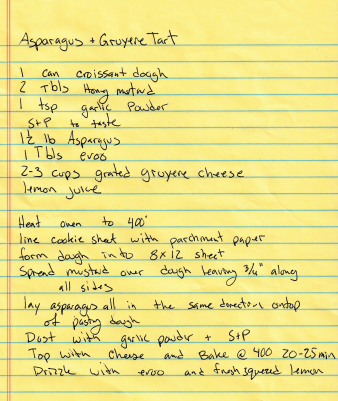 Asparagus + Gruyere Tart
1 can croissant dough
2 Tbls Honey mustard
1 tsp garlic Powder
S+P to taste
1½ lb Asparagus
1 Tbls evoo
2-3 cups grated gruyere cheese
lemon juice
Heat oven to 400°
line cookie sheet with parchment paper
form dough into 8x12 sheet
Spread mustard over dough leaving 3/4" along
all sides
lay asparagus all in the same direction ontop
of pastry dough
Dust with garlic powder + S+P
Top with Cheese and Bake @ 400 20-25min
Drizzle with evoo and fresh squeezed lemon